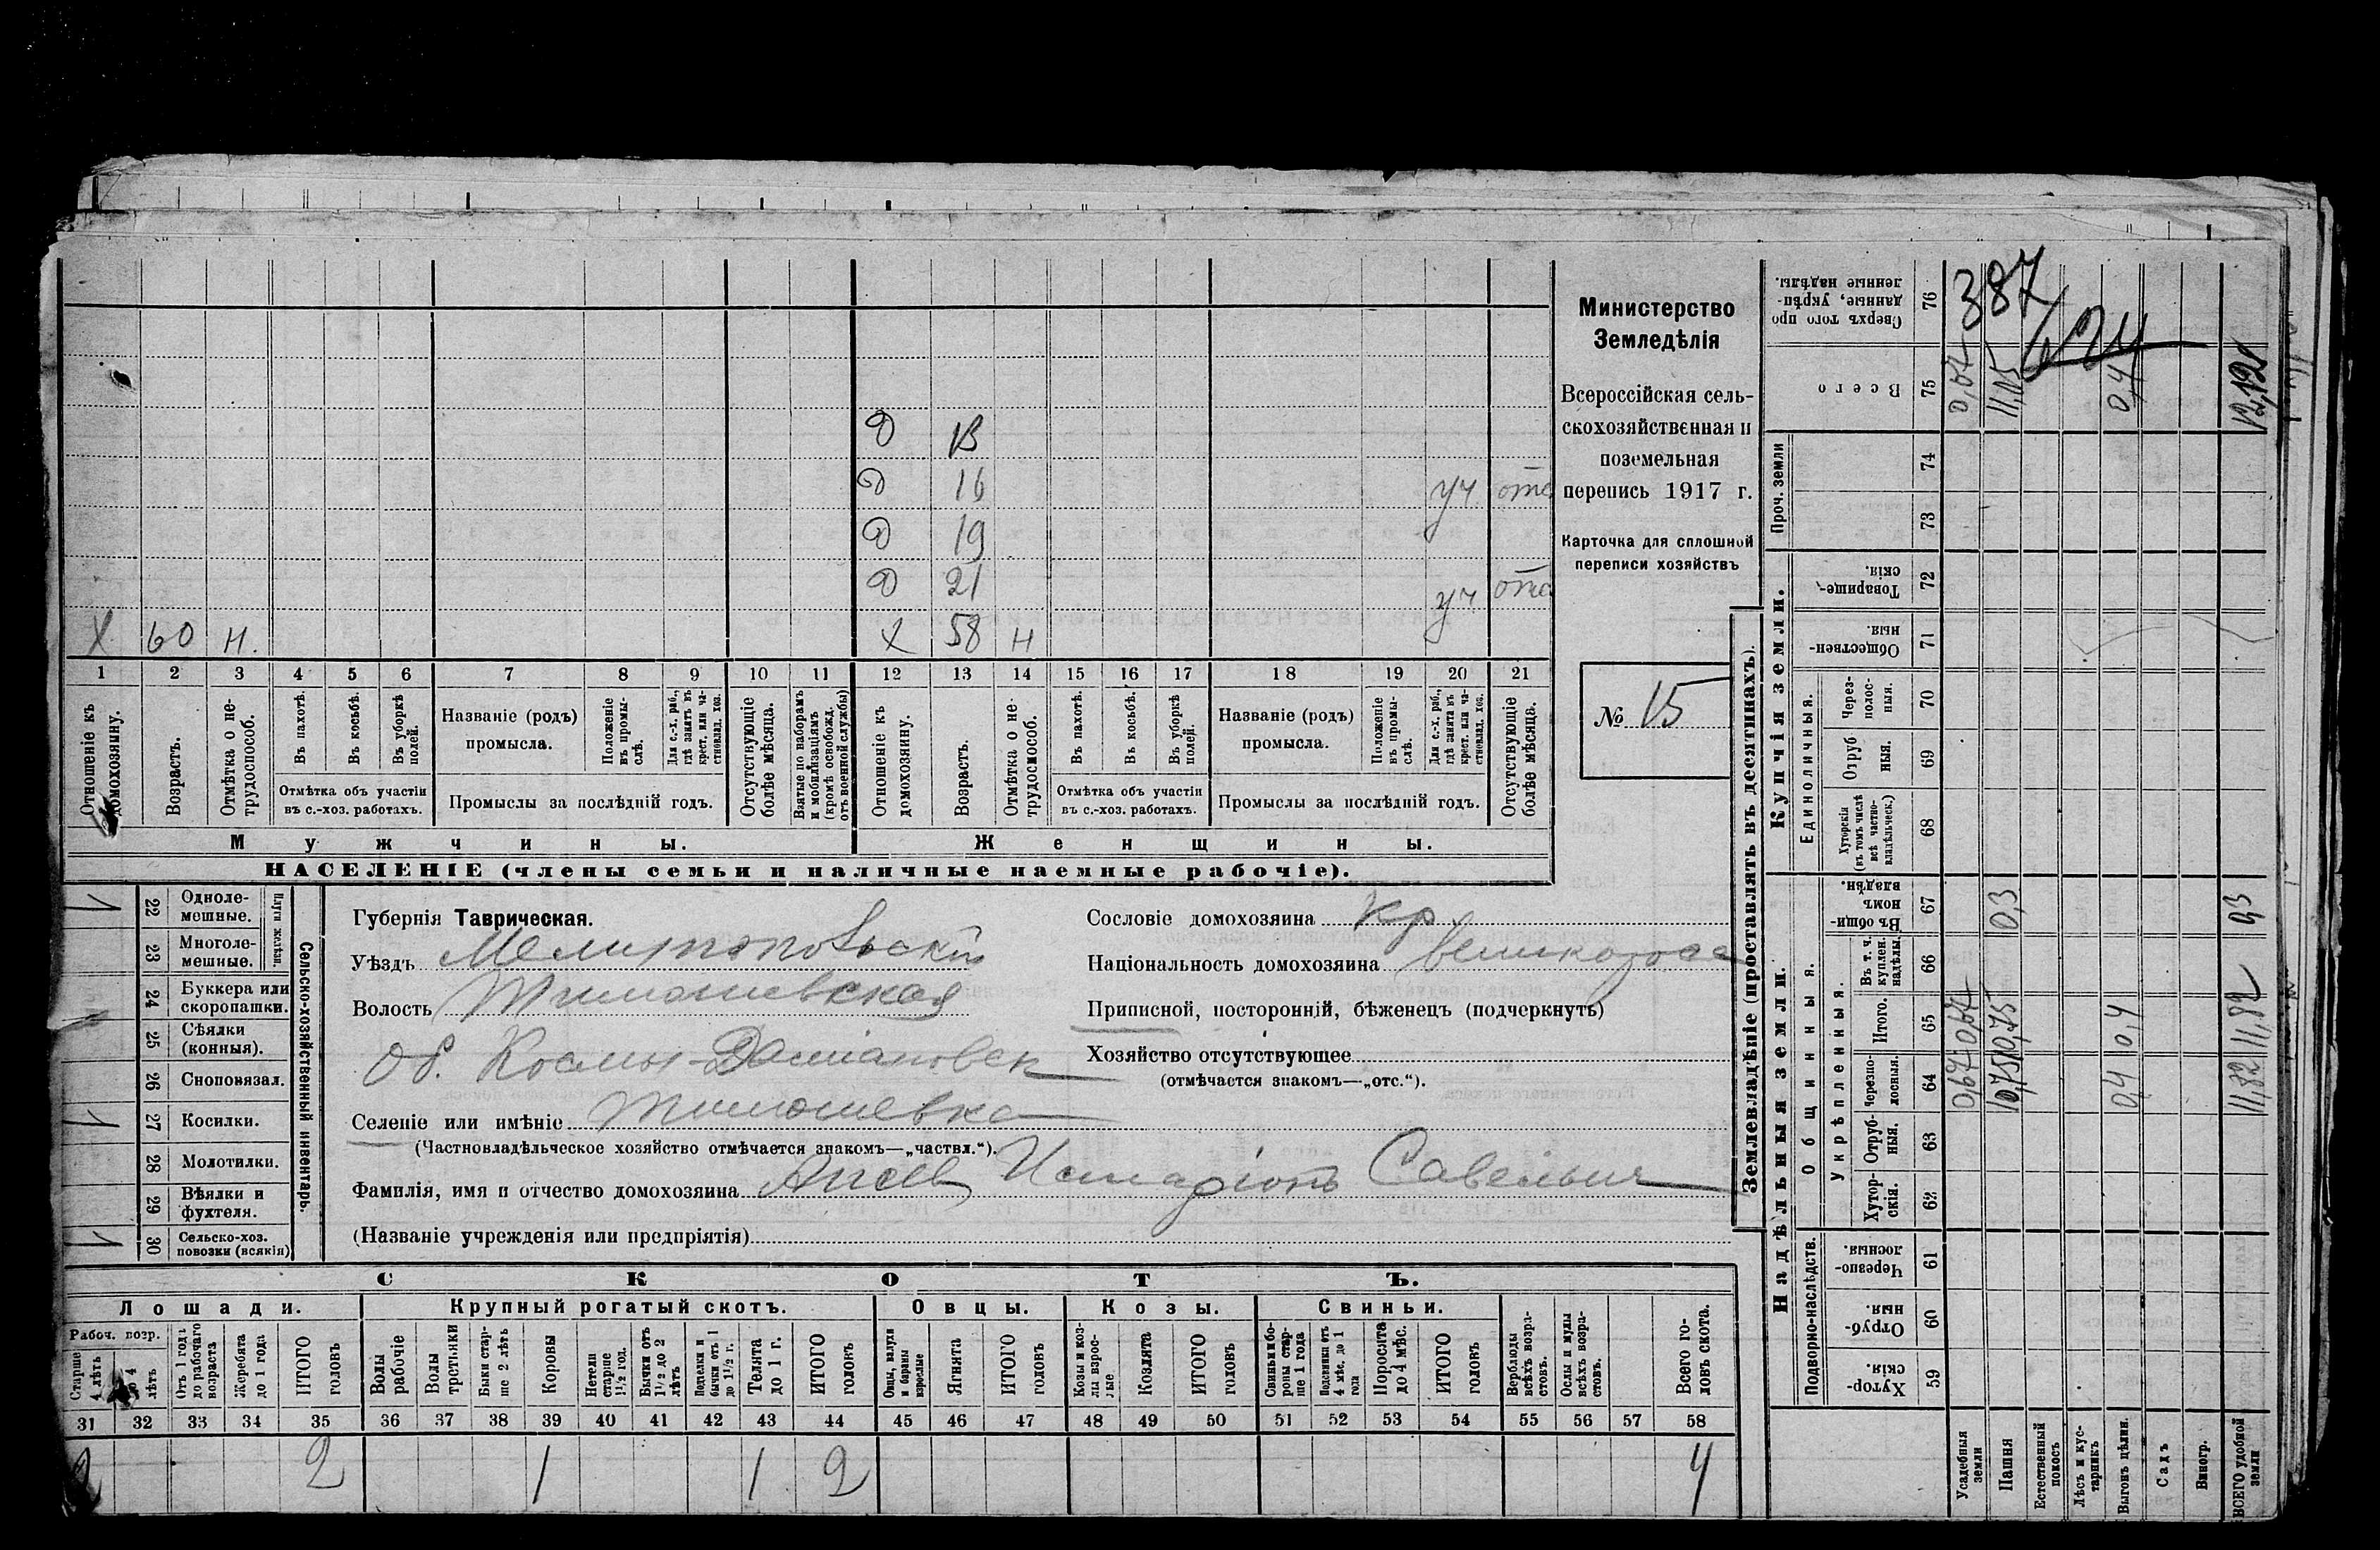 X 60 н.
Д 13
Д 16 уч отс
Д 19
Д 21 уч отс
X 58 н
1 2 3 4 5 6 7 8 9 10 11 12 13 14 15 16 17 18 19 20 21
Отношеніе къ домохозяину.
Возрастъ.
Отмѣтка о нетрудоспособ.
Въ пахотѣ.
Въ косьбѣ.
Въ уборкѣ полей.
Отмѣтка объ участіи въ с.-хоз. работахъ.
Названіе (родъ) промысла.
Положеніе въ промыслѣ.
Для с.-х. раб., гдѣ занятъ въ крест. или частновлад. хоз.
Промыслы за послѣдній годъ.
Отсутствующіе болѣе мѣсяца.
Взятые по наборамъ и мобилизаціямъ (кромѣ освобожд. отъ военной службы)
Отношеніе къ домохозяину.
Возрастъ.
Отмѣтка о нетрудоспособ.
Въ пахотѣ.
Въ косьбѣ.
Въ уборкѣ полей.
Отмѣтка объ участіи въ с.-хоз. работахъ.
Названіе (родъ) промысла.
Положеніе въ промыслѣ.
Для с.-х. раб., гдѣ занята въ крест. или частновлад. хоз.
Промыслы за послѣдній годъ.
Отсутствующіе болѣе мѣсяца.
Мужчины. Женщины.
НАСЕЛЕНІЕ (члены семьи и наличные наемные рабочіе).
Министерство
Земледѣлія
Всероссійская сель-
скохозяйственная и
поземельная
перепись 1917 г.
Карточка для сплошной
переписи хозяйствъ
№ 15
1 22 Одноле-мешные.
23 Многоле-мешные.
Плуги желѣзн.
24 Буккера или скоропашки.
25 Сѣялки (конныя).
26 Сноповязал.
1 27 Косилки.
28 Молотилки.
29 Вѣялки и фухтеля.
1 30 Сельско-хоз. повозки (всякія)
Сельско-хозяйственный инвентарь.
Губернія Таврическая.
Уѣздъ Мелитопольскій
Волость Тимошевская
Об. Космы-Даміановск
Селеніе или имѣніе Тимошевка
(Частновладѣльческое хозяйство отмѣчается знакомъ—„частвл.“).
Фамилія, имя и отчество домохозяина Савельич
(Названіе учрежденія или предпріятія)
Сословіе домохозяина кр.
Національность домохозяина великоросс
Приписной, посторонній, бѣженецъ (подчеркнуть)
Хозяйство отсутствующее
(отмѣчается знакомъ—„отс.“).
СКОТЪ.
Лошади. Крупный рогатый скотъ. Овцы. Козы. Свиньи.
Рабоч. возр.
Старше 4 лѣтъ
до 4 лѣтъ
Отъ 1 года до рабочаго возраста
Жеребята до 1 года
ИТОГО головъ
Волы рабочіе
Волы третьяки
Быки старше 2 лѣтъ
Коровы
Нетели старше 1½ год.
Бычки отъ 1½ до 2 лѣтъ
Подтелки и бычки отъ 1 до 1½ г.
Телята до 1 г.
ИТОГО головъ
Овцы, валухи и бараны взрослые
Ягнята
ИТОГО головъ
Козы и козлы взрослые
Козлята
ИТОГО головъ
Свиньи и боровы старше 1 года
Подсвинки отъ 4 мѣс. до 1 года
Поросята до 4 мѣс.
ИТОГО головъ
Верблюды всѣхъ возрастовъ.
Ослы и мулы всѣхъ возрастовъ.
Всего головъ скота.
31 32 33 34 35 36 37 38 39 40 41 42 43 44 45 46 47 48 49 50 51 52 53 54 55 56 57 58
2 2 1 1 2 4
Землевладѣніе (проставлять въ десятинахъ).
Надѣльныя земли. Купчія земли. Проч. земли
Подворно-наслѣдств.
Общинныя.
Укрѣпленныя.
Единоличныя.
Хуторскія. 59
Отрубныя. 60
Черезполосныя. 61
Хуторскія. 62
Отрубныя. 63
Черезполосныя. 64
Итого. 65
Въ т. ч. куплен. надѣлы. 66
Въ общинномъ владѣн. 67
Хуторскія (въ томъ числѣ всѣ частновладѣльческ.) 68
Отрубныя. 69
Черезполосныя. 70
Общественныя. 71
Товарищескія. 72
73
74
Всего 75
Сверхъ того проданные, укрѣпленные надѣлы. 76
Усадебныя земли 0,67 0,67 0,67
Пашня 10,75 10,75 0,3 11,05
Естественный покосъ
Лѣсъ и кустарникъ
Выгонъ цѣлин. 0,4 0,4 0,4
Садъ
Виногр.
ВСЕГО удобной земли 11,82 11,82 0,3 12,12
387